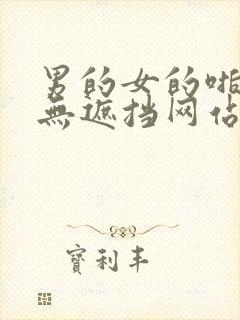 男的女的啪
無遮挡网站
寳利丰